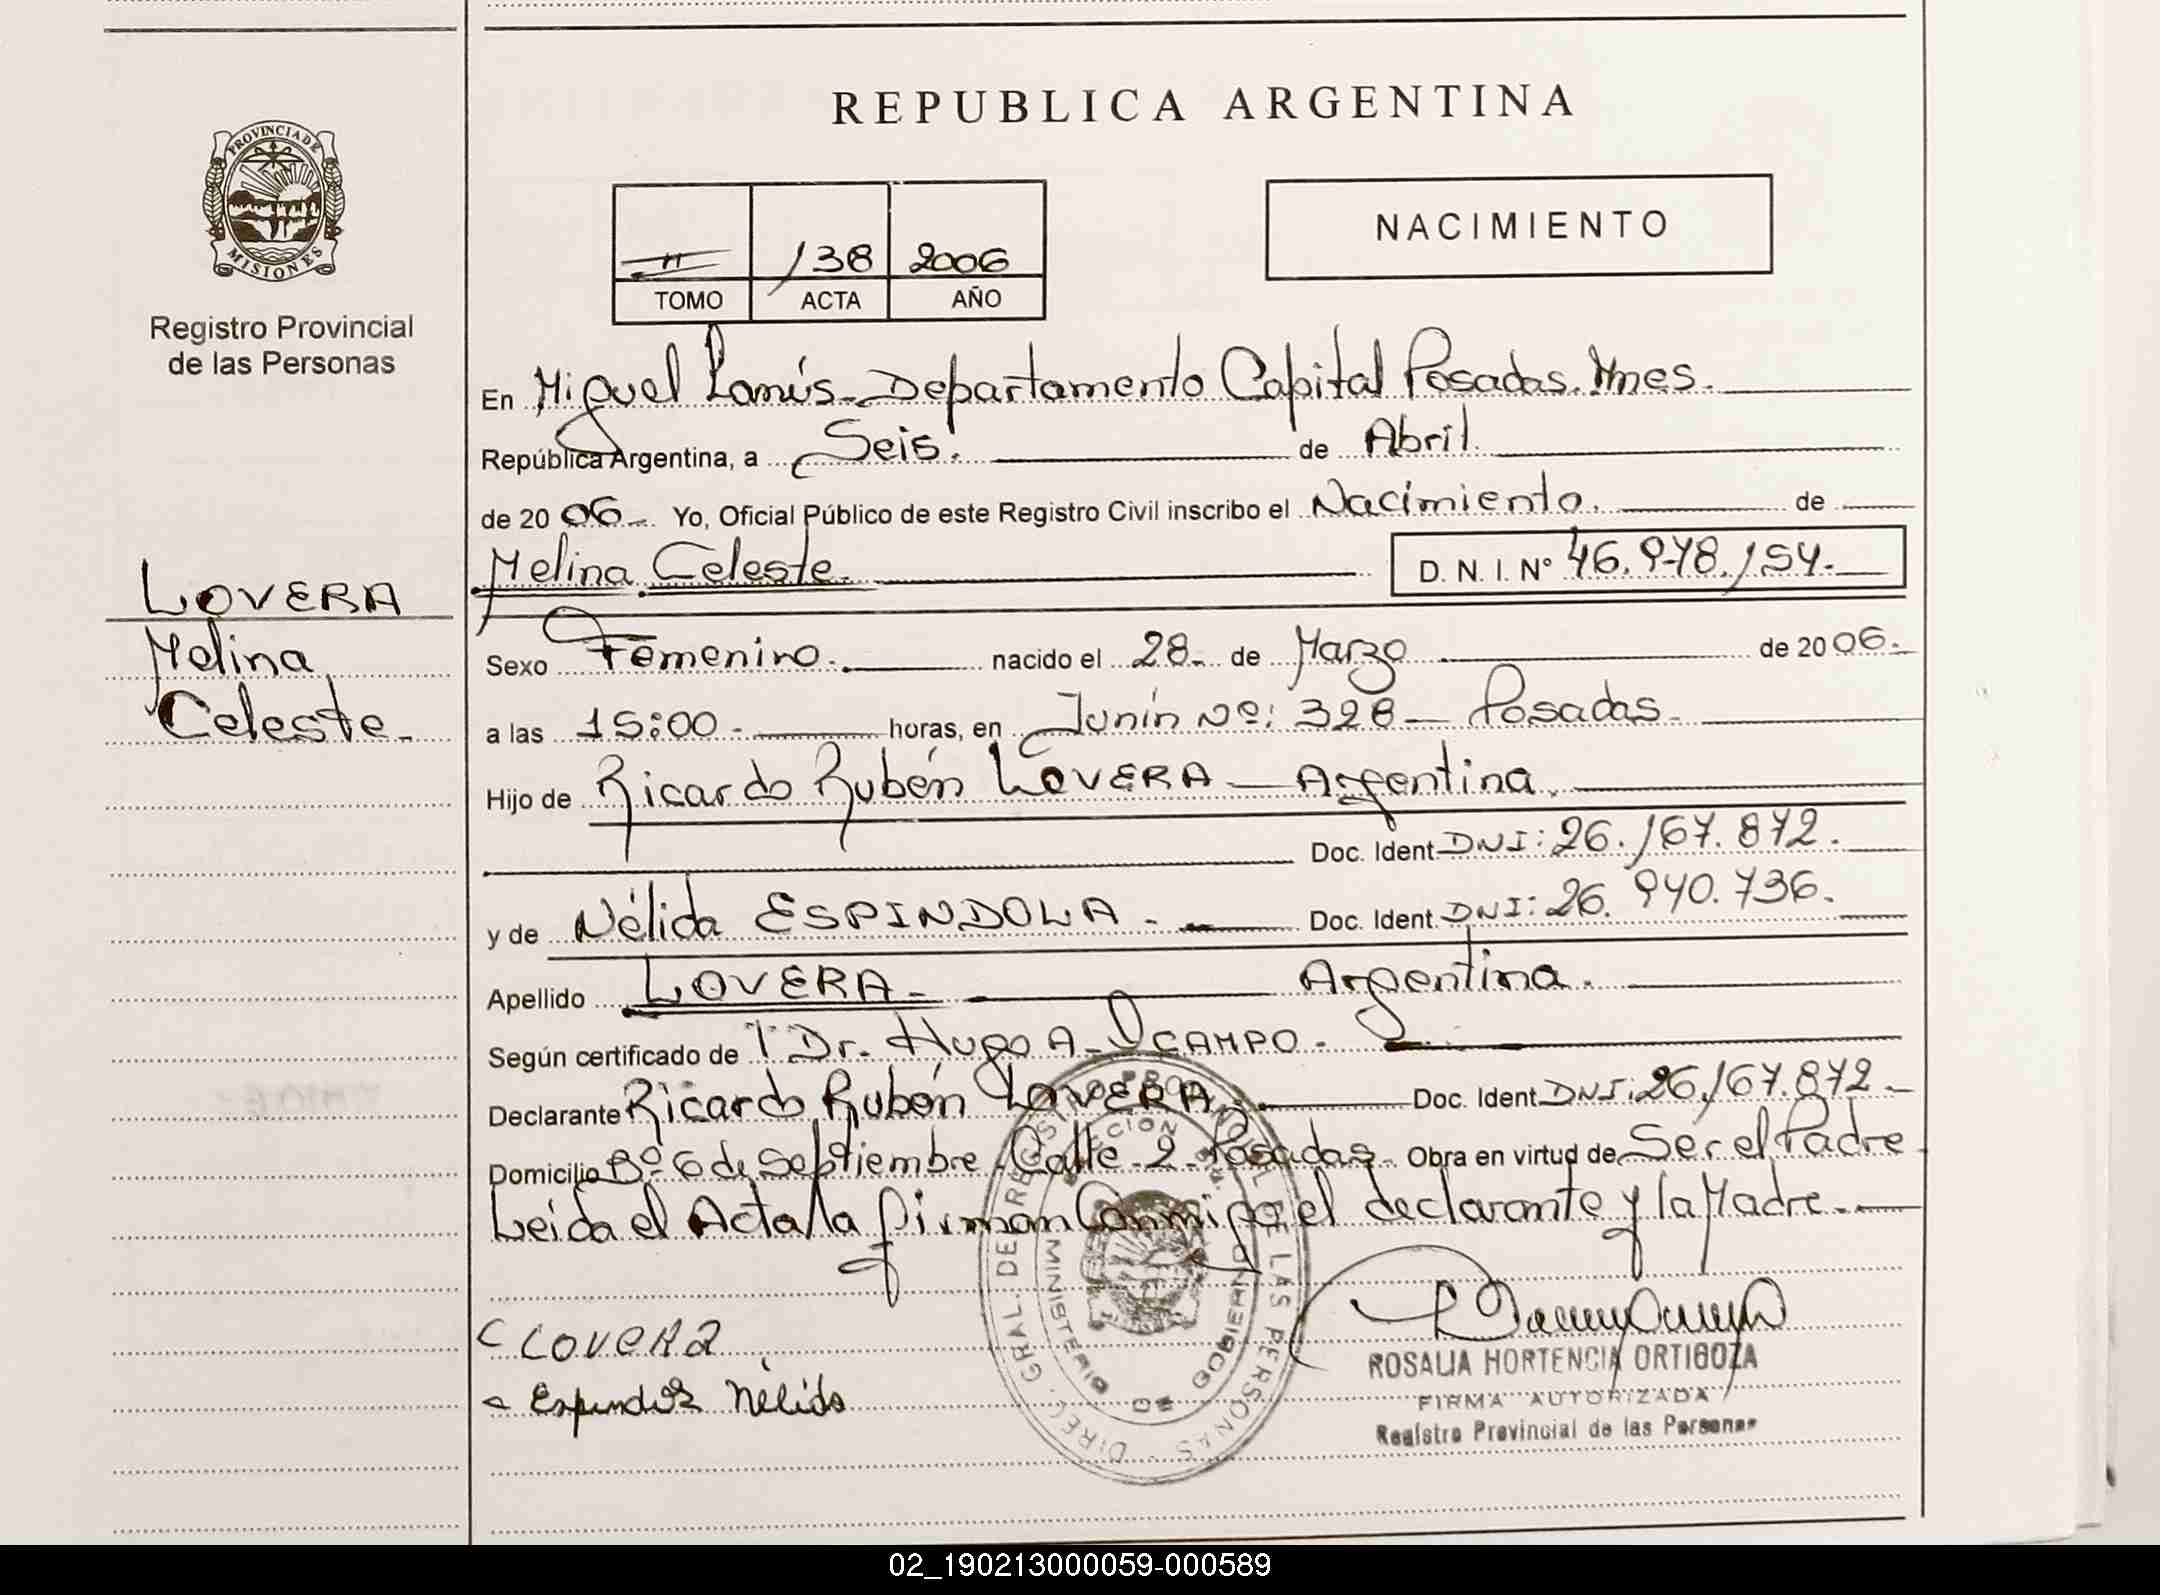 REPUBLICA ARGENTINA
PROVINCIA DE
MISIONES
Registro Provincial
de las Personas
138 2006
TOMO ACTA AÑO
NACIMIENTO
En Miguel Lanús - Departamento Capital Posadas. Mnes.
República Argentina, a Seis. de Abril.
de 2006 Yo, Oficial Público de este Registro Civil inscribo el Nacimiento. de
Melina Celeste. D. N. I. Nº 46.978.154.
LOVERA
Melina
Celeste.
Sexo Femenino. nacido el 28 de Marzo de 2006.
a las 15:00 horas, en Junín Nº: 328 - Posadas.
Hijo de Ricardo Rubén LOVERA - Argentina.
Doc. Ident DNI: 26.167.872.
y de Nélida ESPINDOLA. Doc. Ident. DNI: 26.940.736.
Apellido LOVERA - Argentina.
Según certificado de Dr. Hugo A. OCAMPO.
Declarante Ricardo Rubén LOVERA. Doc. Ident DNI: 26.167.872
Domicilio Bº 6 de Septiembre - Calle 2 - Posadas. Obra en virtud de Ser el Padre
Leida el Acta la firman Conmigo el declarante y la Madre.
DIREC. GRAL. DE REGISTRO PROVINCIAL DE LAS PERSONAS
MINISTERIO DE GOBIERNO
LOVERA
Nélida
ROSALIA HORTENCIA ORTIGOZA
FIRMA AUTORIZADA
Registro Provincial de las Personas
02_190213000059-000589